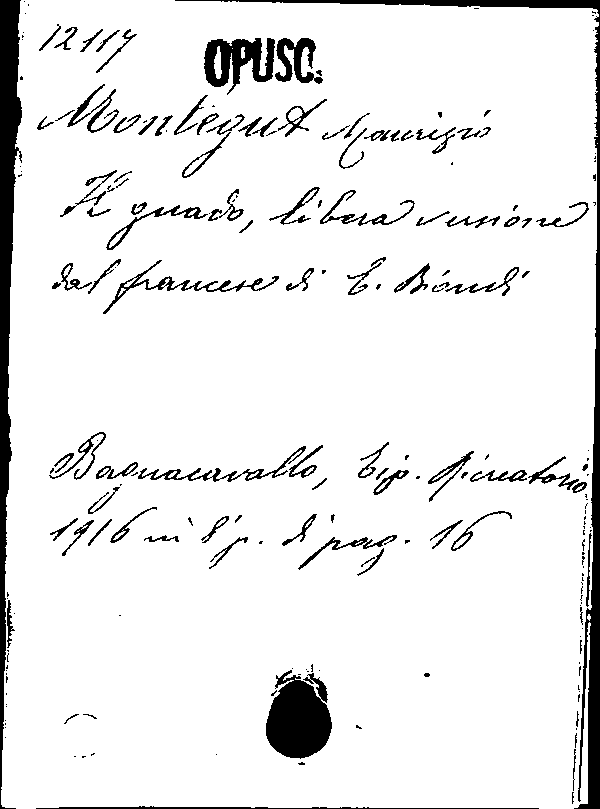 12117
OPUSC.
Montégut Maurizio
Il guado, libera versione
dal francese di E. Biondi
Bagnacavallo, Tip. Ricreatorio
1916 in 8° p. di pag. 16